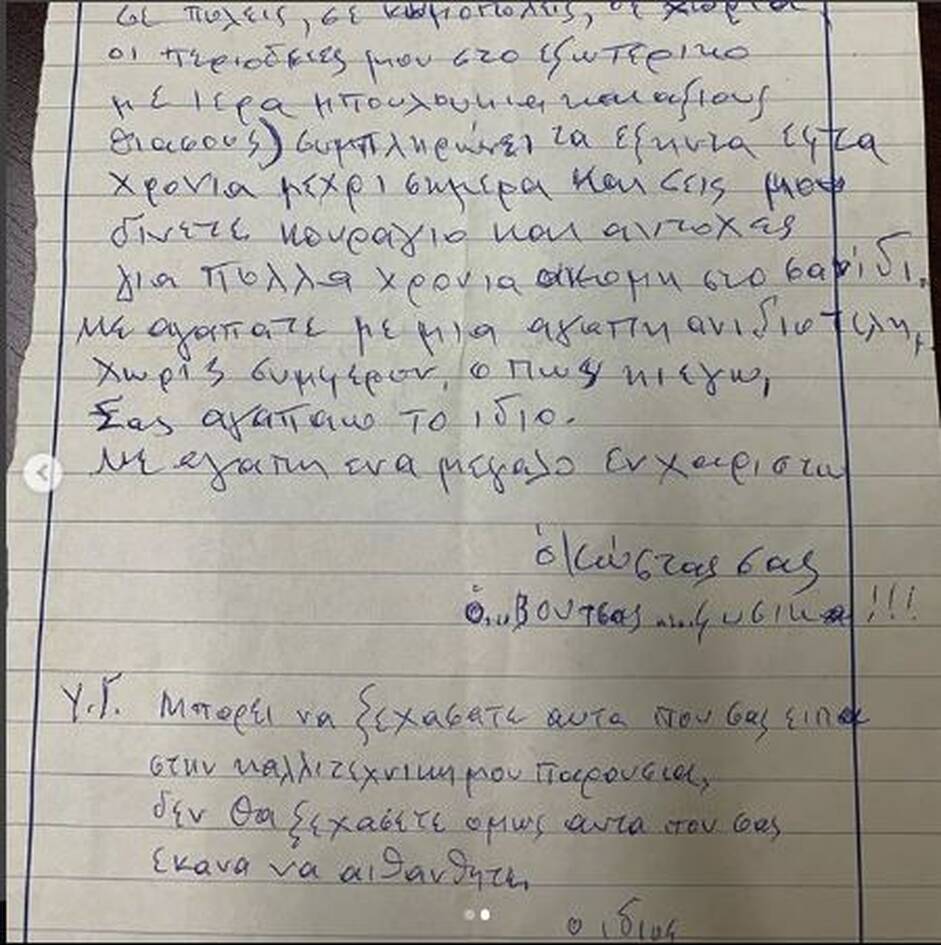 σε πολεις, σε κωμοπολεις, σε χωρια
οι περιοδειες μου στο εξωτερικο
με ιερα μπουλουκια και αξιους
θιασους) συμπληρώνει τα εξηντα εφτα
χρονια μεχρι σημερα και σεις μου
δινετε κουραγιο και αντοχες
για πολλα χρονια ακομη στο σανίδι.
Με αγαπατε με μια αγαπη ανιδιοτελη,
χωρις συμφερον, οπως κι εγω,
Σας αγαπαω το ιδιο.
Με αγαπη ενα μεγαλο ευχαριστω
ὁ Κώστας σας
ὁ... Βουτσας .... φυσικα !!!
Υ.Γ. Μπορει να ξεχασατε αυτα που σας ειπα
στην καλλιτεχνικη μου παρουσια,
δεν θα ξεχασετε ομως αυτα που σας
εκανα να αιθανθητε.
ο ιδιος